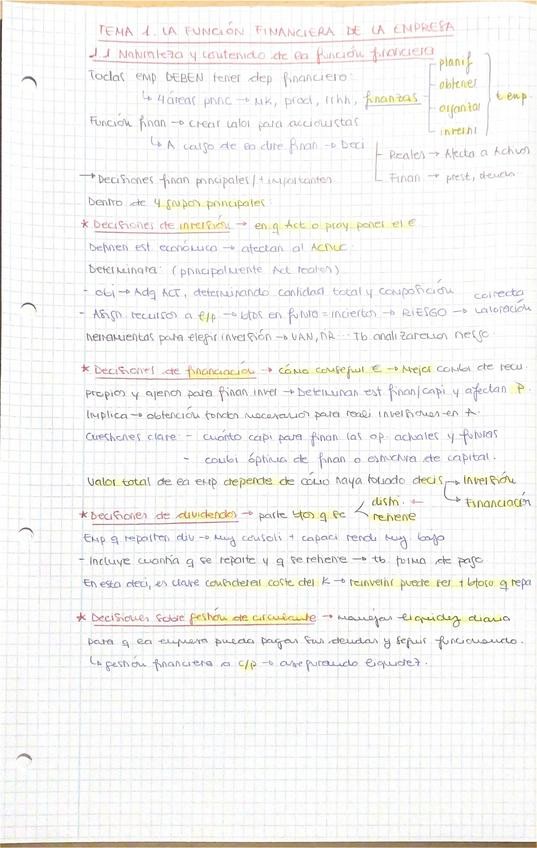 TEMA 1. LA FUNCIÓN FINANCIERA DE LA EMPRESA
1.1 Naturaleza y contenido de la función financiera
Todas emp DEBEN tener dep financiero:
↳ 4 áreas princ → MK, prod, rrhh, finanzas
planif
obtener
organizar
invertir
temp.
Función finan → crear valor para accionistas
↳ A cargo de la dire finan → Deci
Reales → Afecta a Activos
Finan → prest, deuda
→ Decisiones finan principales / + importantes
Dentro de 4 grupos principales:
* Decisiones de inversión → en q Act o proy poner el €
Definen est económica → afectan al Activo
Determinará: (principalmente Act reales)
- obj → Adq ACT, determinando cantidad total y composición
- Asign recursos a l/p → btos en futuro = inciertos → RIESGO → correcta valoración
herramientas para elegir inversión → VAN, TIR... Tb analizaremos riesgo.
* Decisiones de financiación → cómo conseguir € → Mejor comb de recu
propios y ajenos para finan inver → Determinan est finan/capi y afectan P.
Implica → obtención fondos necesarios para reali inversiones en A.
Cuestiones clave: - cuánto capi para finan las op. actuales y futuras
- combi óptima de finan o estructura de capital.
Valor total de la emp depende de cómo haya tomado decis
→ Inversión
→ Financiación
* Decisiones de dividendos → parte btos q se
distri. ←
retiene
Emp q reparten div → Muy consoli + capaci rendi muy bajo
- Incluye cuantía q se reparte y q se retiene → tb forma de pago
En esta deci, es clave considerar coste del K → reinvertir puede ser + btoso q repa
* Decisiones sobre gestión de circulante → manejar liquidez diaria
para q la empresa pueda pagar sus deudas y seguir funcionando.
↳ gestión financiera a c/p → asegurando liquidez.